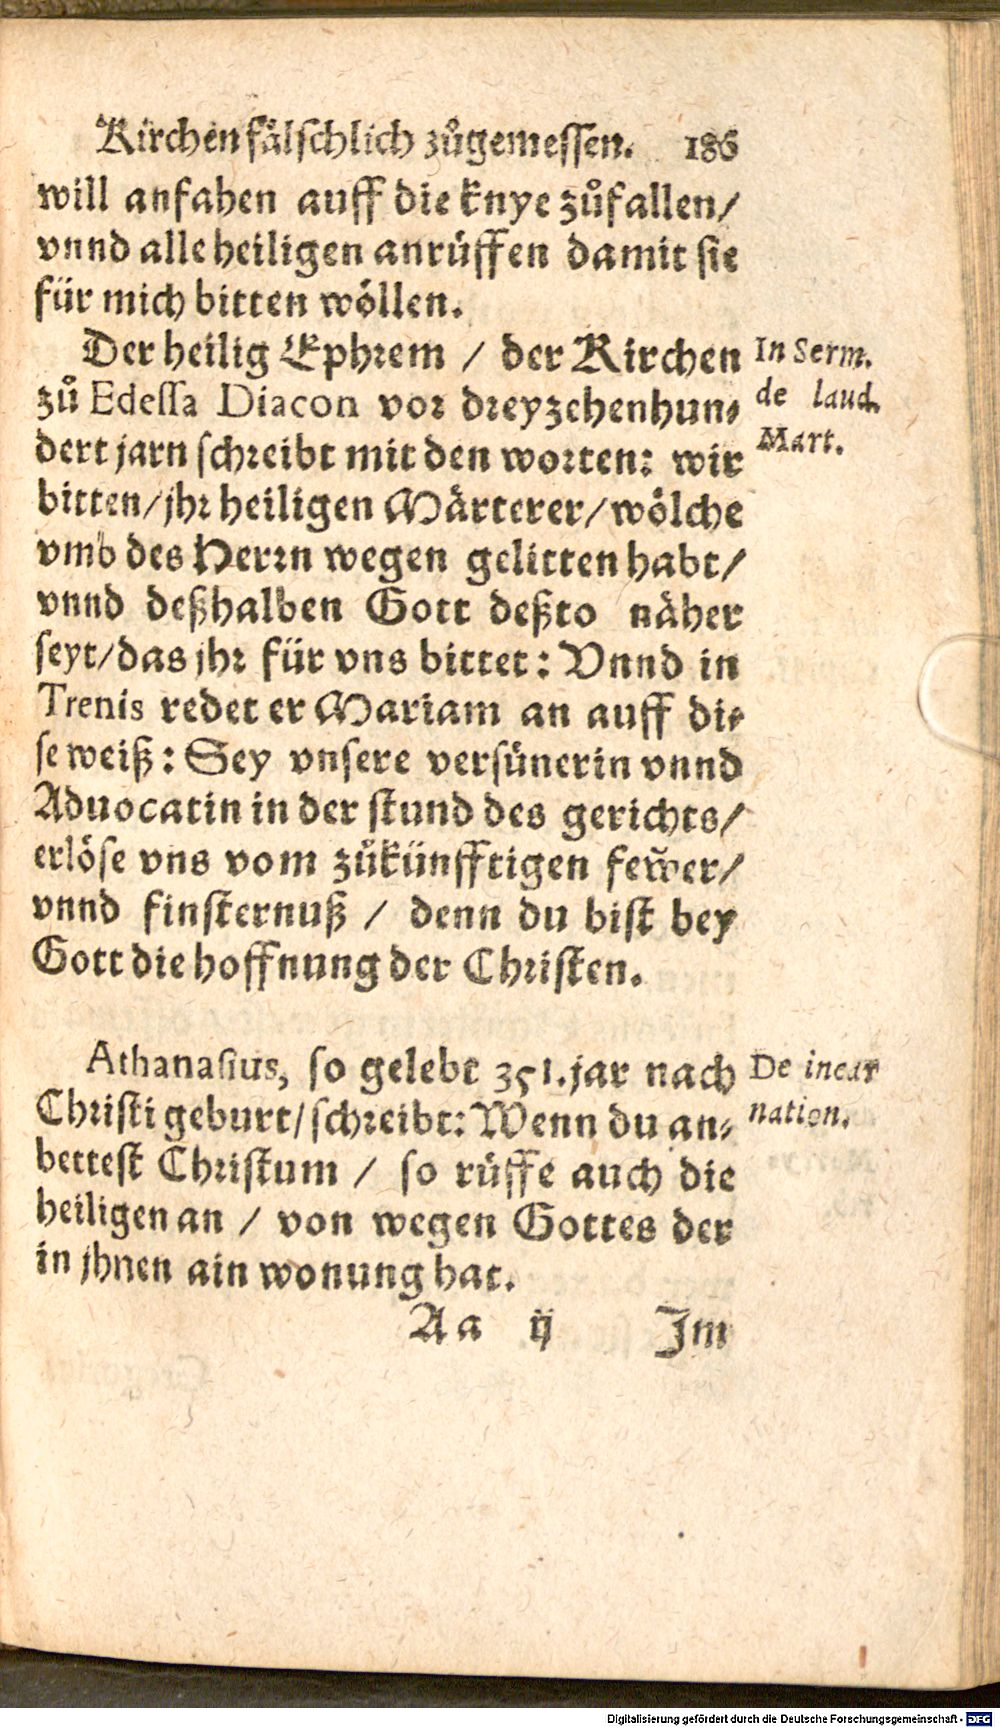 Kirchen fälschlich zůgemessen. 186
will anfahen auff die knye zůfallen/
vnnd alle heiligen anrüffen damit sie
für mich bitten wöllen.
Der heilig Ephrem / der Kirchen
zů Edessa Diacon vor dreyzehenhun-
dert jarn schreibt mit den worten: wir
bitten/jhr heiligen Märterer/wölche
vmb des Herrn wegen gelitten habt/
vnnd deßhalben Gott deßto näher
seyt/das jhr für vns bittet: Vnnd in
Trenis redet er Mariam an auff die-
se weiß: Sey vnsere versünerin vnnd
Aduocatin in der stund des gerichts/
erlöse vns vom zůkünfftigen fewer/
vnnd finsternuß / denn du bist bey
Gott die hoffnung der Christen.
In Serm.
de laud.
Mart.
Athanasius, so gelebt 351. jar nach
Christi geburt/schreibt: Wenn du an-
bettest Christum / so rüffe auch die
heiligen an / von wegen Gottes der
in jhnen ain wonung hat.
De incar
nation.
Aa ij Jm
Digitalisierung gefördert durch die Deutsche Forschungsgemeinschaft - DFG